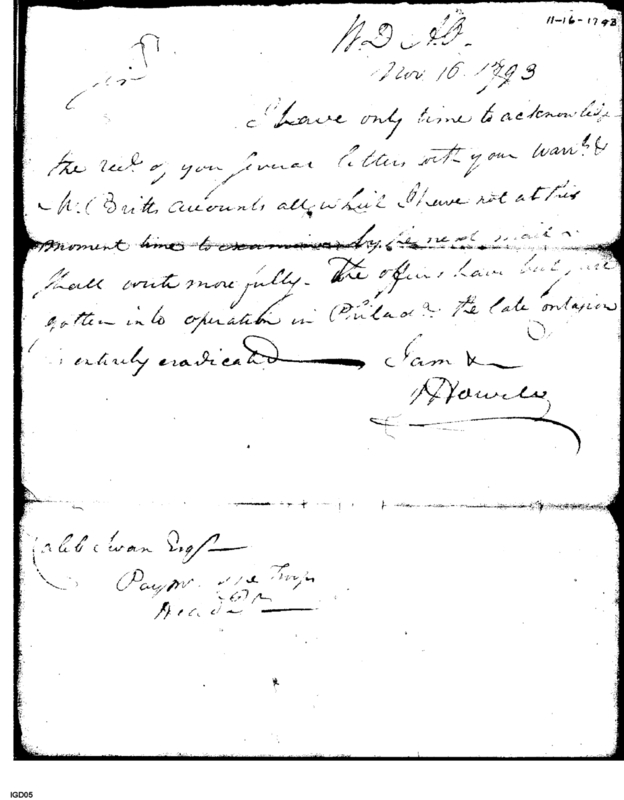 11-16-1793
W. D A. O.
Nov. 16. 1793
Sir
I have only time to acknowledge
the rect. of your several letters with your warrts. &
McBritts accounts all which I have not at this
moment time to examine by the next mail
shall write more fully. The offices have but just
gotten into operation in Philada. the late contagion
is entirely eradicated I am &
Howell
Caleb Swan Esqr
Paymr. Troops
Head
IGD05